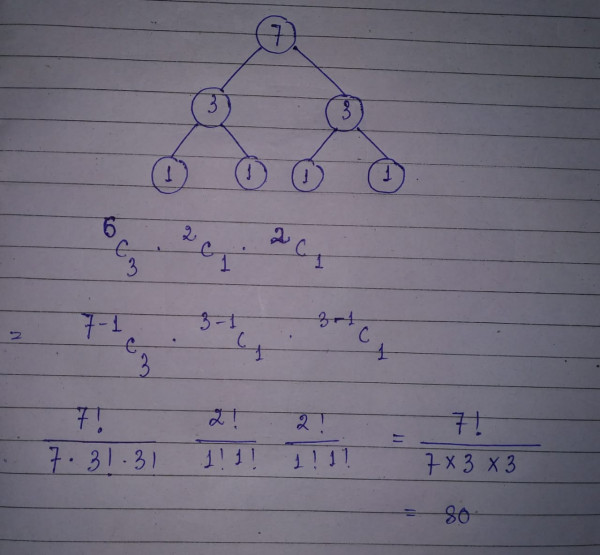 7
3 3
1 1 1 1
⁶C₃ · ²C₁ · ²C₁
= ⁷⁻¹C₃ · ³⁻¹C₁ · ³⁻¹C₁
7! / 7·3!·3! 2! / 1!1! 2! / 1!1! = 7! / 7×3×3
= 80